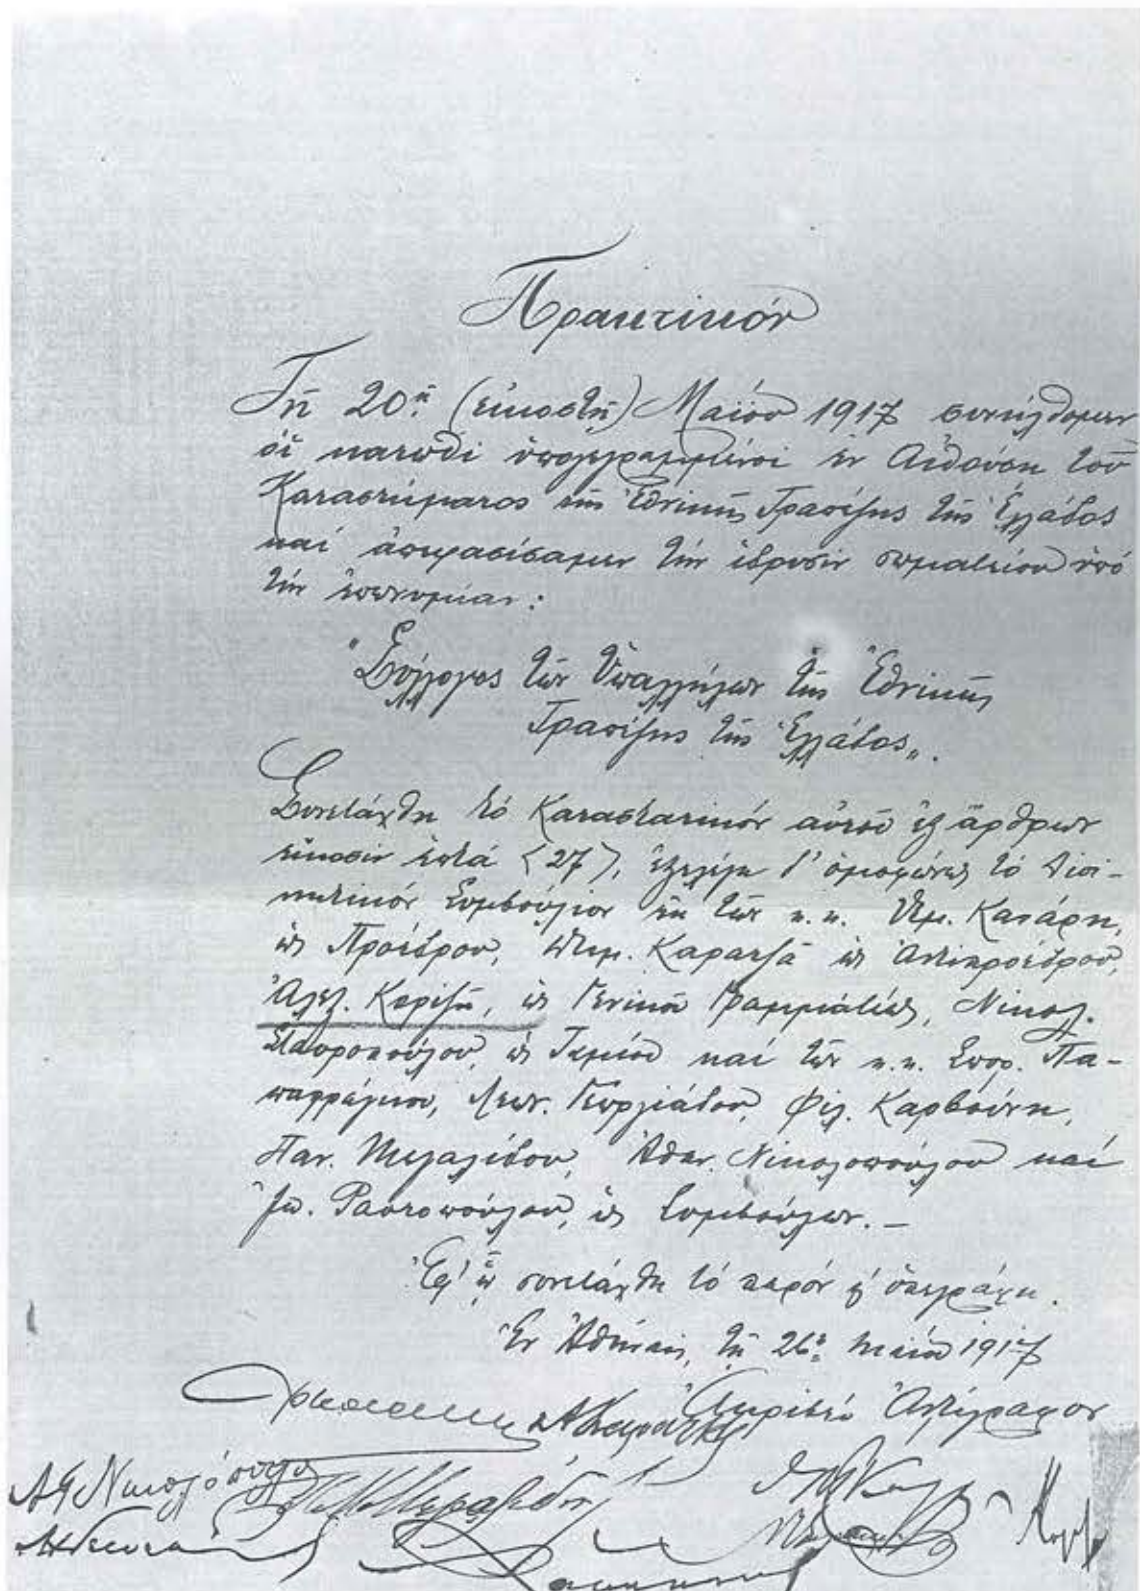 Πρακτικόν
Τῇ 20ῇ (εἰκοστῇ) Μαΐου 1917 συνήλθομεν
οἱ κάτωθι ὑπογεγραμμένοι ἐν Αἰθούσῃ τοῦ
Καταστήματος τῆς Ἐθνικῆς Τραπέζης τῆς Ἑλλάδος
καί ἀπεφασίσαμεν τήν ἵδρυσιν σωματείου ὑπό
τήν ἐπωνυμίαν:
"Σύλλογος τῶν Ὑπαλλήλων τῆς Ἐθνικῆς
Τραπέζης τῆς Ἑλλάδος„.
Συνετάχθη τό Καταστατικόν αὐτοῦ ἐξ ἄρθρων
εἴκοσιν ἑπτά (27), ἐξελέγη δ' ὁμοφώνως τό Διοι-
κητικόν Συμβούλιον ἐκ τῶν κ.κ. Δημ. Καψάρη,
ὡς Προέδρου, Δημ. Καρατζᾶ ὡς Ἀντιπροέδρου,
Ἀλεξ. Κοριζῆ, ὡς Γενικοῦ Γραμματέως, Νικολ.
Σταυροπούλου, ὡς Ταμίου καί τῶν κ.κ. Σπυρ. Πα-
παφράγκου, Λεων. Γεωργιάδου, Φιλ. Καρβούνη,
Παν. Μιχαλίδου, Ἀθαν. Νικολοπούλου καί
Ἰω. Ραυτοπούλου, ὡς Συμβούλων. —
Ἐφ' ᾧ συνετάχθη τό παρόν κ' ὑπεγράφη.
Ἐν Ἀθήναις, τῇ 26ῃ Μαΐου 1917
Ἀκριβές Ἀντίγραφον
ΑΘ Νικολόπουλος